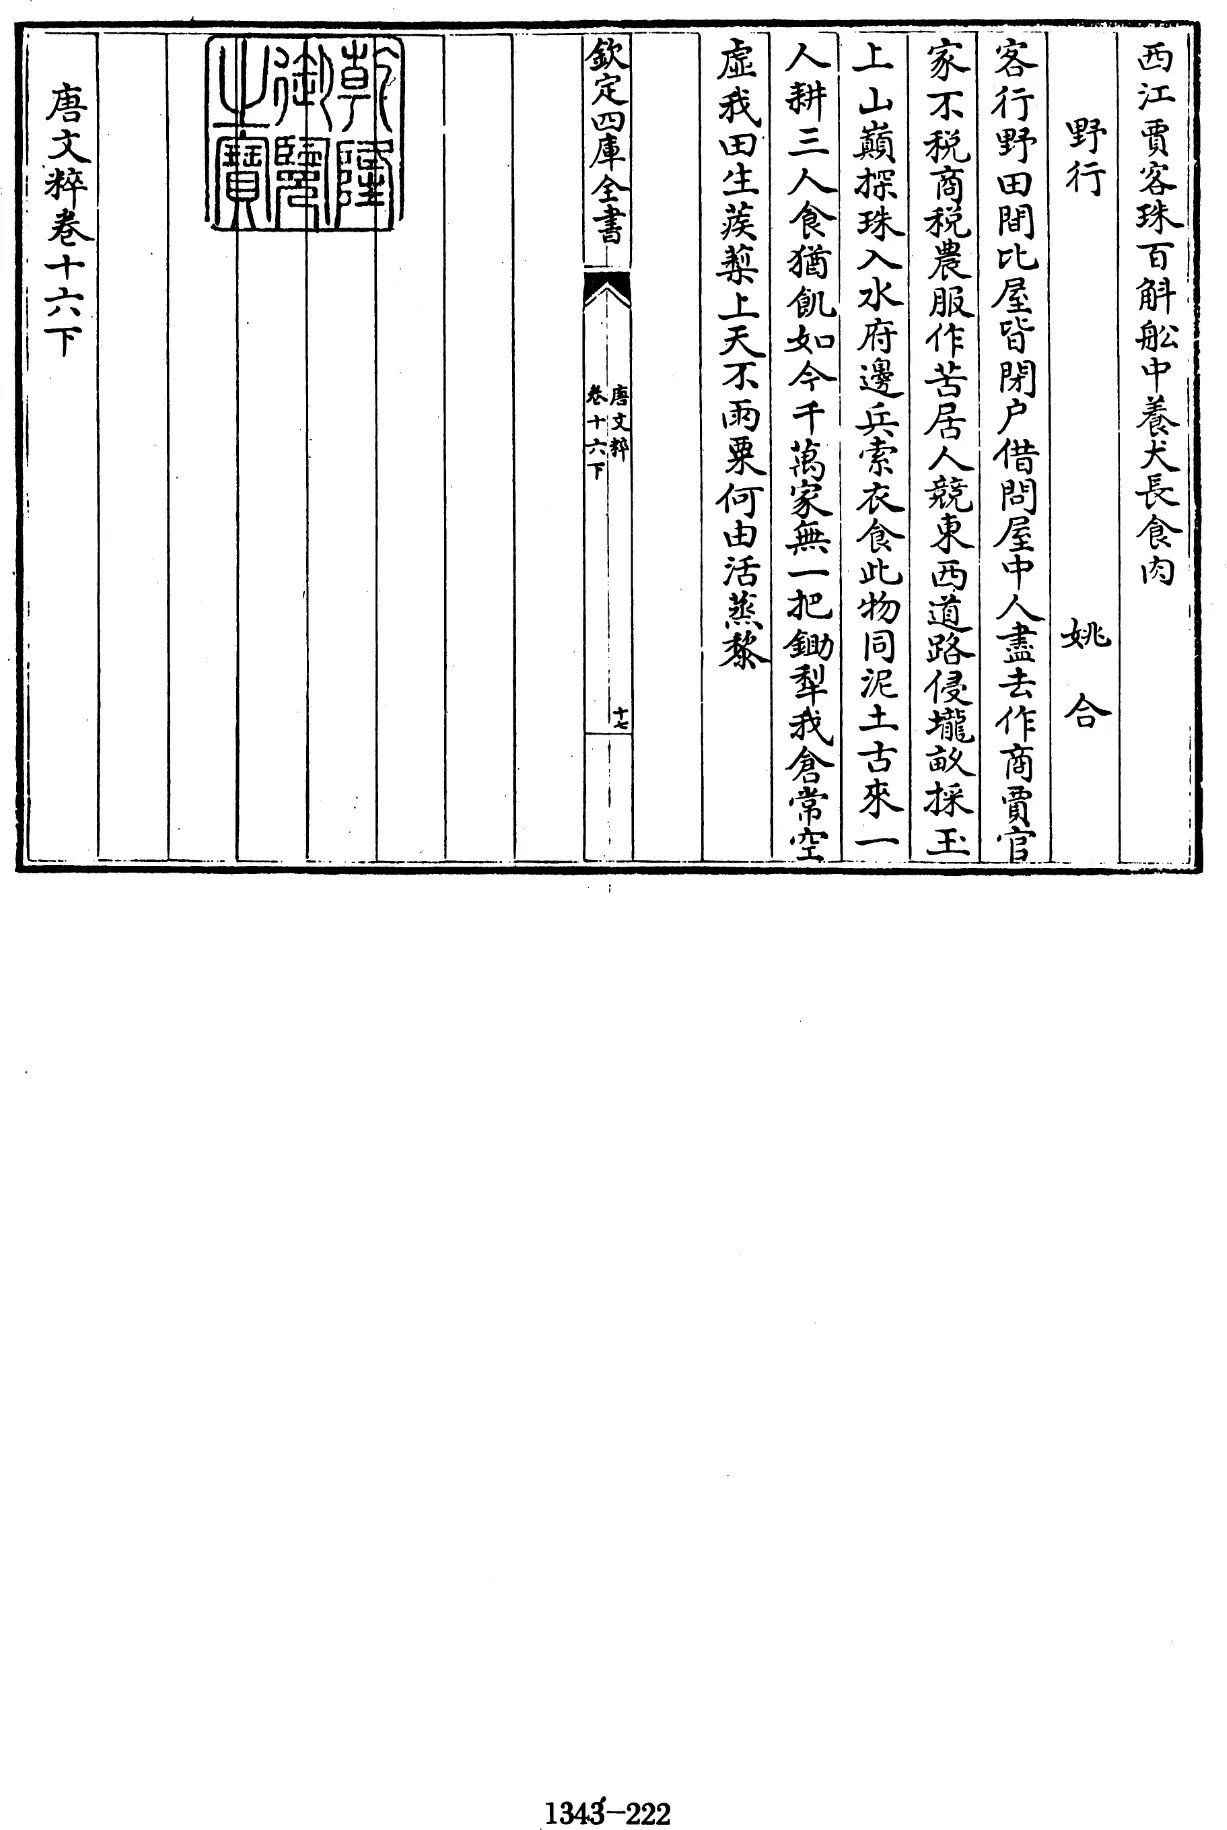 西江賈客珠百斛船中養犬長食肉
野行 姚合
客行野田間比屋皆閉户借問屋中人盡去作商賈官
家不税商税農服作苦居人競東西道路侵壠畝採玉
上山巔探珠入水府邊兵索衣食此物同泥土古來一
人耕三人食猶飢如今千萬家無一把鋤犁我倉常空
虛我田生蒺藜上天不雨粟何由活蒸黎
欽定四庫全書
唐文粹
卷十六下
十七
乾隆御覽之寶
唐文粹卷十六下
1343-222